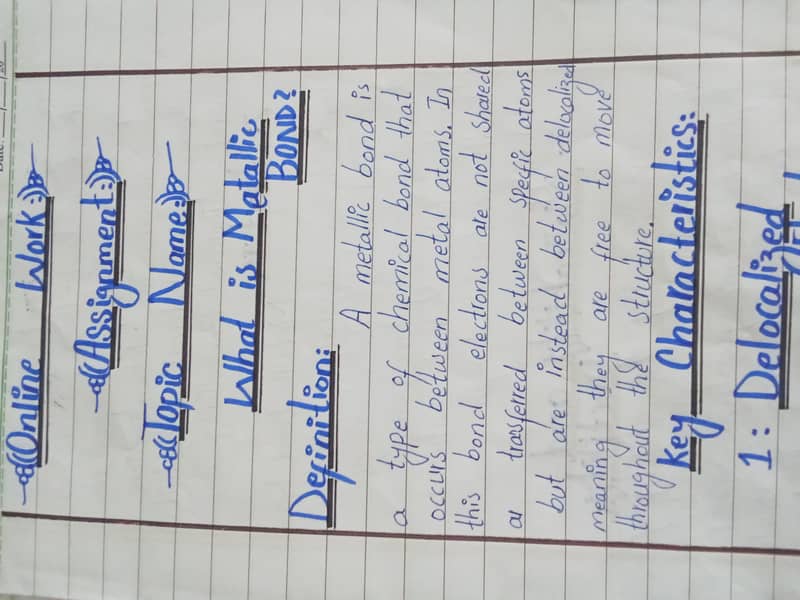 Online Work:
Assignment:
Topic Name:
What is Metallic
BOND?
Definition:
A metallic bond is
a type of chemical bond that
occurs between metal atoms. In
this bond electrons are not shared
or transferred between specific atoms
but are instead between delocalized
meaning they are free to move
throughout the structure.
Key Characteristics:
1: Delocalized